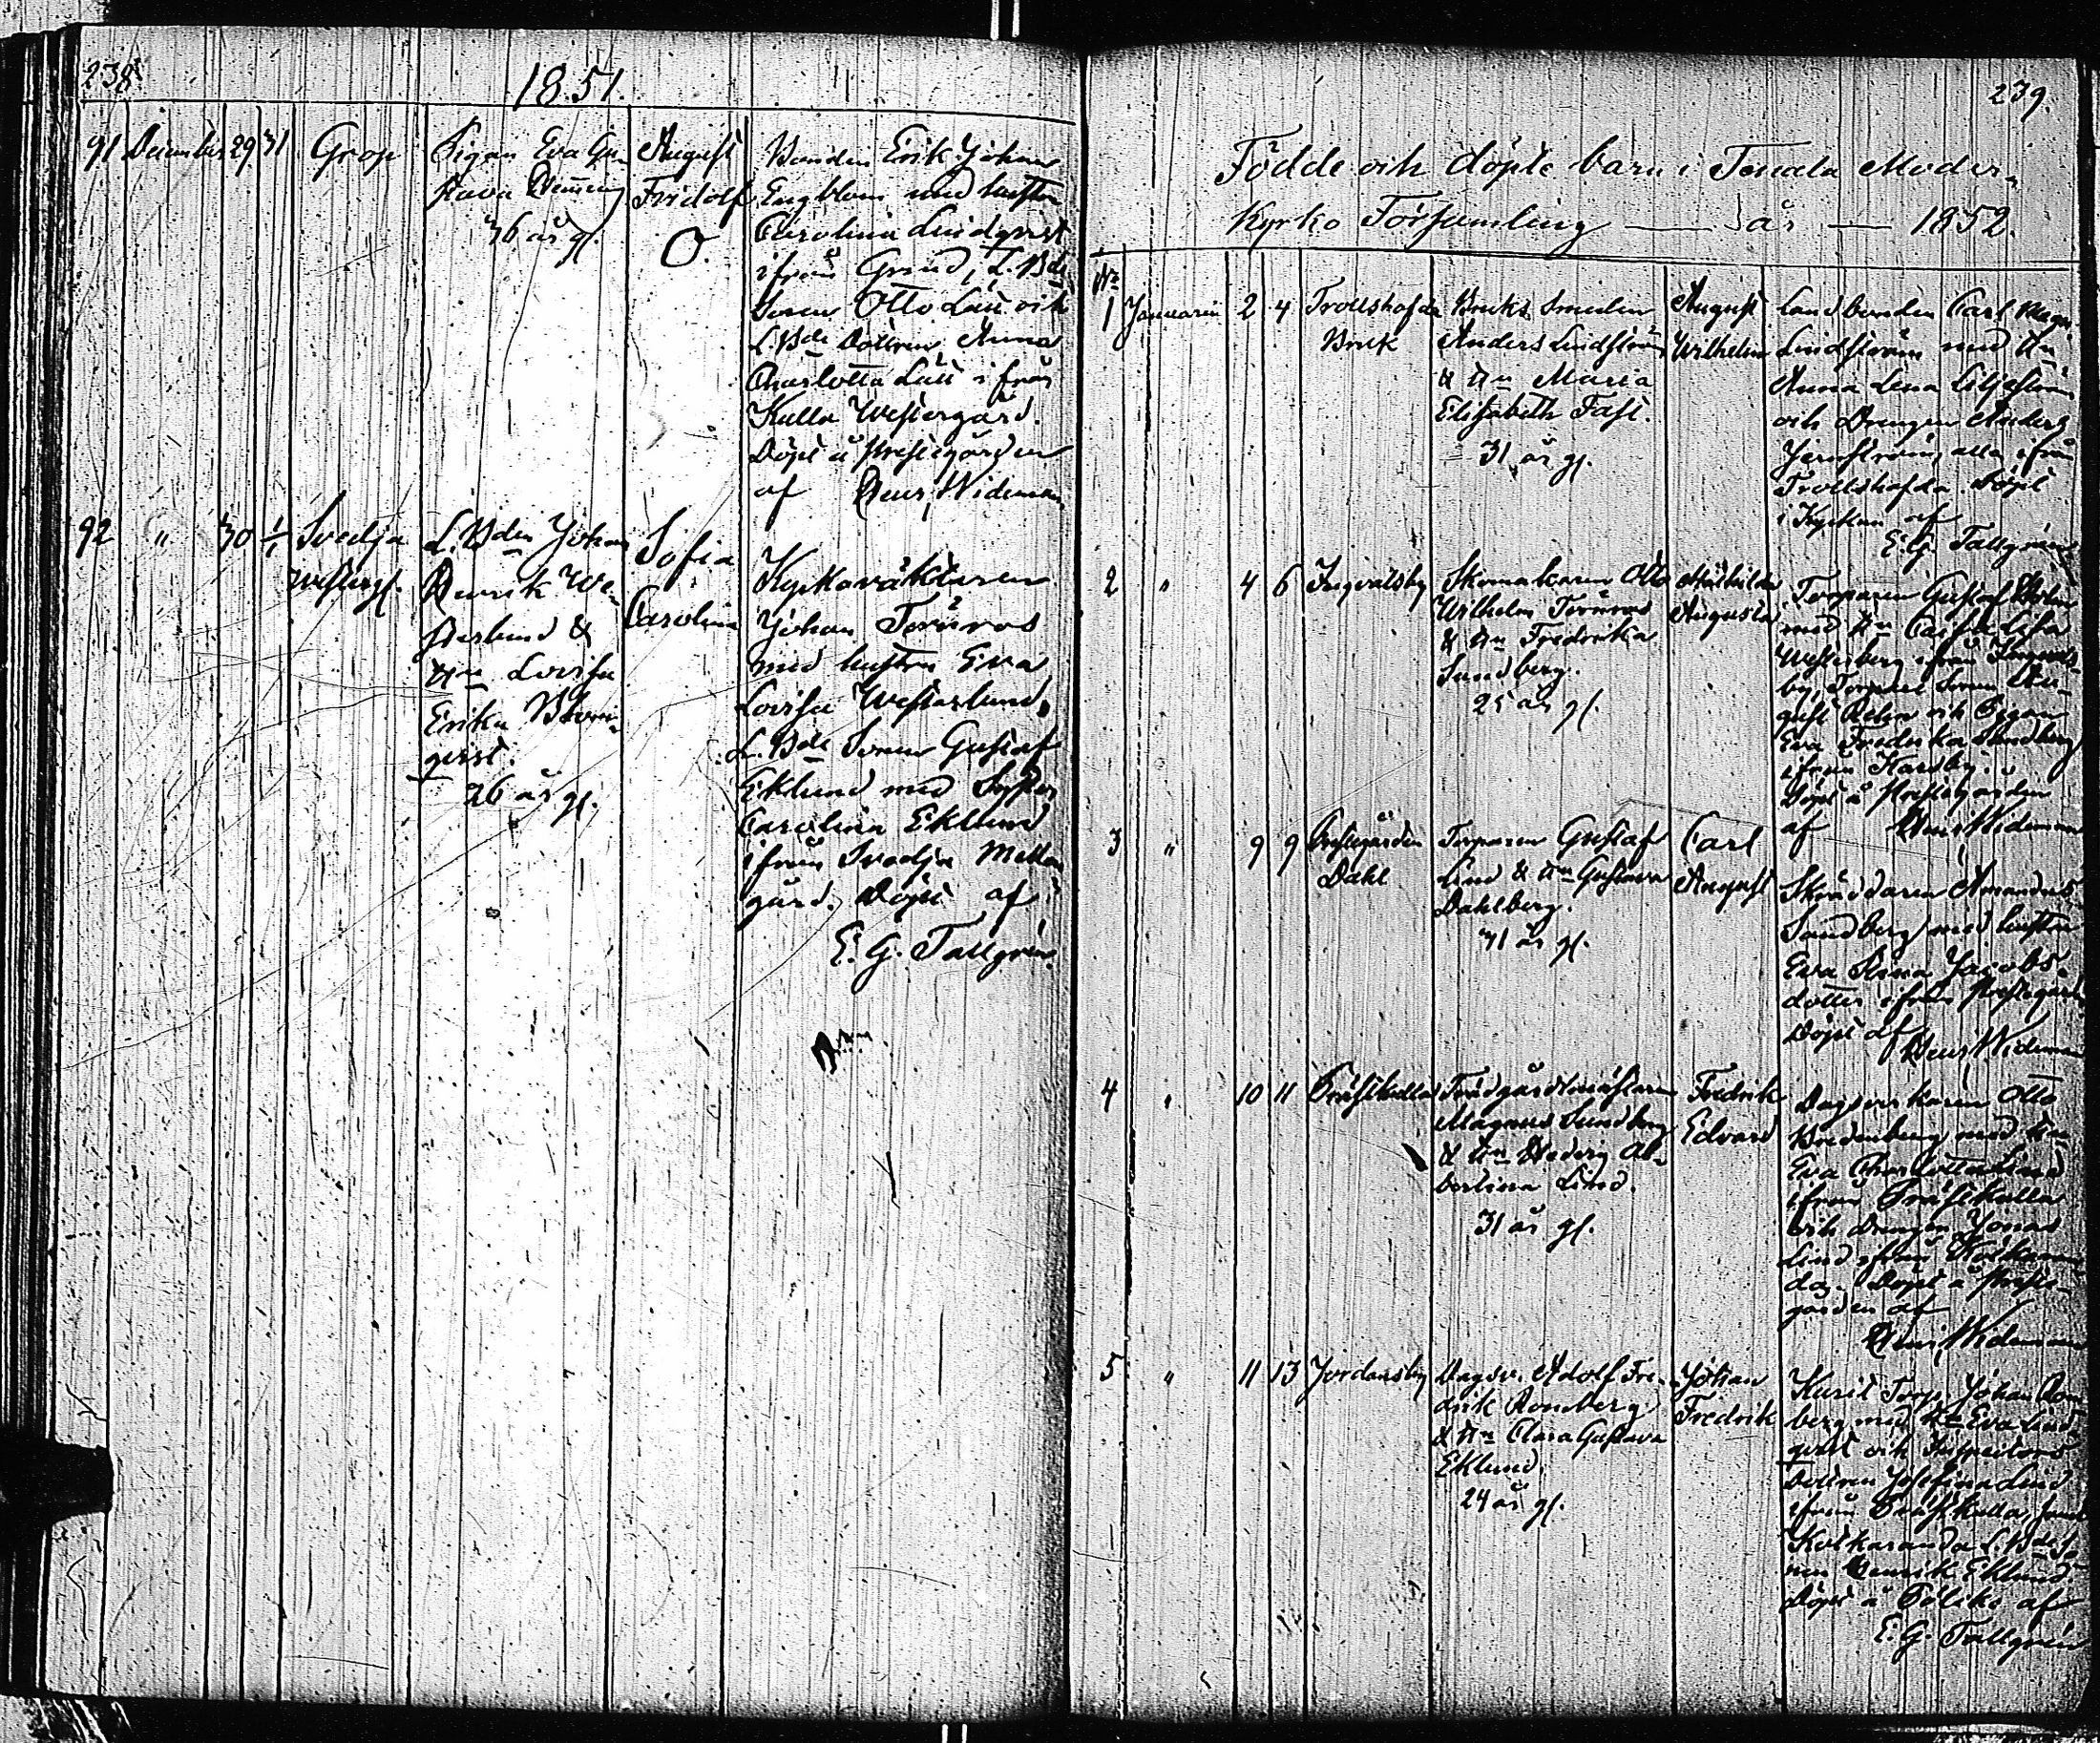 238
1851.
91 December 29 31 Grop Pigan Eva Gu-
stava Flemming
36 år gl.
August
Fridolf
O.
Bonden Erik Johan
Engblom med hustru
Carolina Lindqvist
ifrån Grind, L. Bde
Sonen Otto Lau och
L. Bde Dottren Anna
Charlotta Lau ifrån
Kulla Westergård.
Döpt å Prestegården
af Henr. Wideman
92 " 30 1/1 Svedja
Westerg.
L. Bden Johan
Henrik We-
sterlund &
Hu Lovisa
Erika Block-
qvist.
26 år gl.
Sofia
Carolina
Kyrkoväktaren
Johan Törnroos
med hustru Eva
Lovisa Westerlund,
L. Bde Sonen Gustaf
Eklund med Syster
Carolina Eklund
ifrån Svedja Mellan
gård. Döpt af
E. G. Tallgrén.
239.
Födde och döpte barn i Tenala Moder-
Kyrko Församling år 1852.
No
1 Januarii 2 4 Trollshofda
Bruk
Bruks Smeden
Anders Lindström
& Hu Maria
Elisabeth Fast.
31 år gl.
August
Wilhelm
Landbonden Carl Magn.
Lindström med Hu
Anna Lena Liljeström
och Drengen Anders
Jernström, alla ifrån
Trollshofda. Döpt
i Kyrkan af
E. G. Tallgrén
2 " 4 6 Ingvalsby Skomakaren Otto
Wilhelm Törnroos
& Hu Fredrika
Sundberg.
25 år gl.
Mathilda
Augusta
Torparen Gustaf
med Hu Cajsa Lisa
Westerberg ifrån Ingvals-
by, Torpare Sonen Au-
gust och Pigan
Eva Fredrika Sundberg
ifrån Harsby.
Döpt å Prestegården
af Henr. Wideman
3 " 9 9 Prestegården
Dahl
Torparen Gustaf
Lind & Hu Gustava
Dahlberg.
31 år gl.
Carl
August
Skräddaren Amandus
Sandberg med hustru
Eva Stina Jacobs-
dotter ifrån Prestegård
Döpt af
Henr. Wideman
4 " 10 11 Präskulla Trädgårdsmästaren
Magnus Sundberg
& Hu Hedvig Al-
bertina Lind.
31 år gl.
Fredrik
Edvard
Dagsverkaren Otto
Bredenberg med Hu
Eva Charlotta Lind
ifrån Präskulla
och Drengen Jonas
Lind ifrån
Döpt å Preste-
gården af
Henr. Wideman
5 " 11 13 Jordansby Dagsv. Adolf Fre-
drik Romberg
& Hu Clara Gustava
Eklund.
24 år gl.
Johan
Fredrik
Torp. Johan Rom-
berg med Hu Eva Lind-
qvist och Inspectors
Dottren Josefina Lind
ifrån Präskulla, samt
L. Bde So-
nen Henrik Eklund
Döpt å af
E. G. Tallgrén